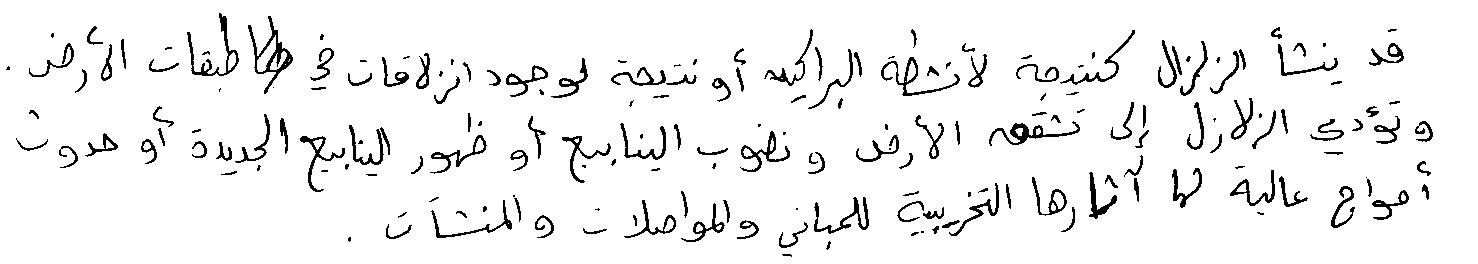 قد ينشأ الزلزال كنتيجة لأنشطة البراكين أو نتيجة لوجود انزلاقات في طبقات الأرض.
وتؤدي الزلازل إلى تشقق الأرض ونضوب الينابيع أو ظهور الينابيع الجديدة أو حدوث
أمواج عالية لها آثارها التخريبية للمباني والمواصلات والمنشآت.